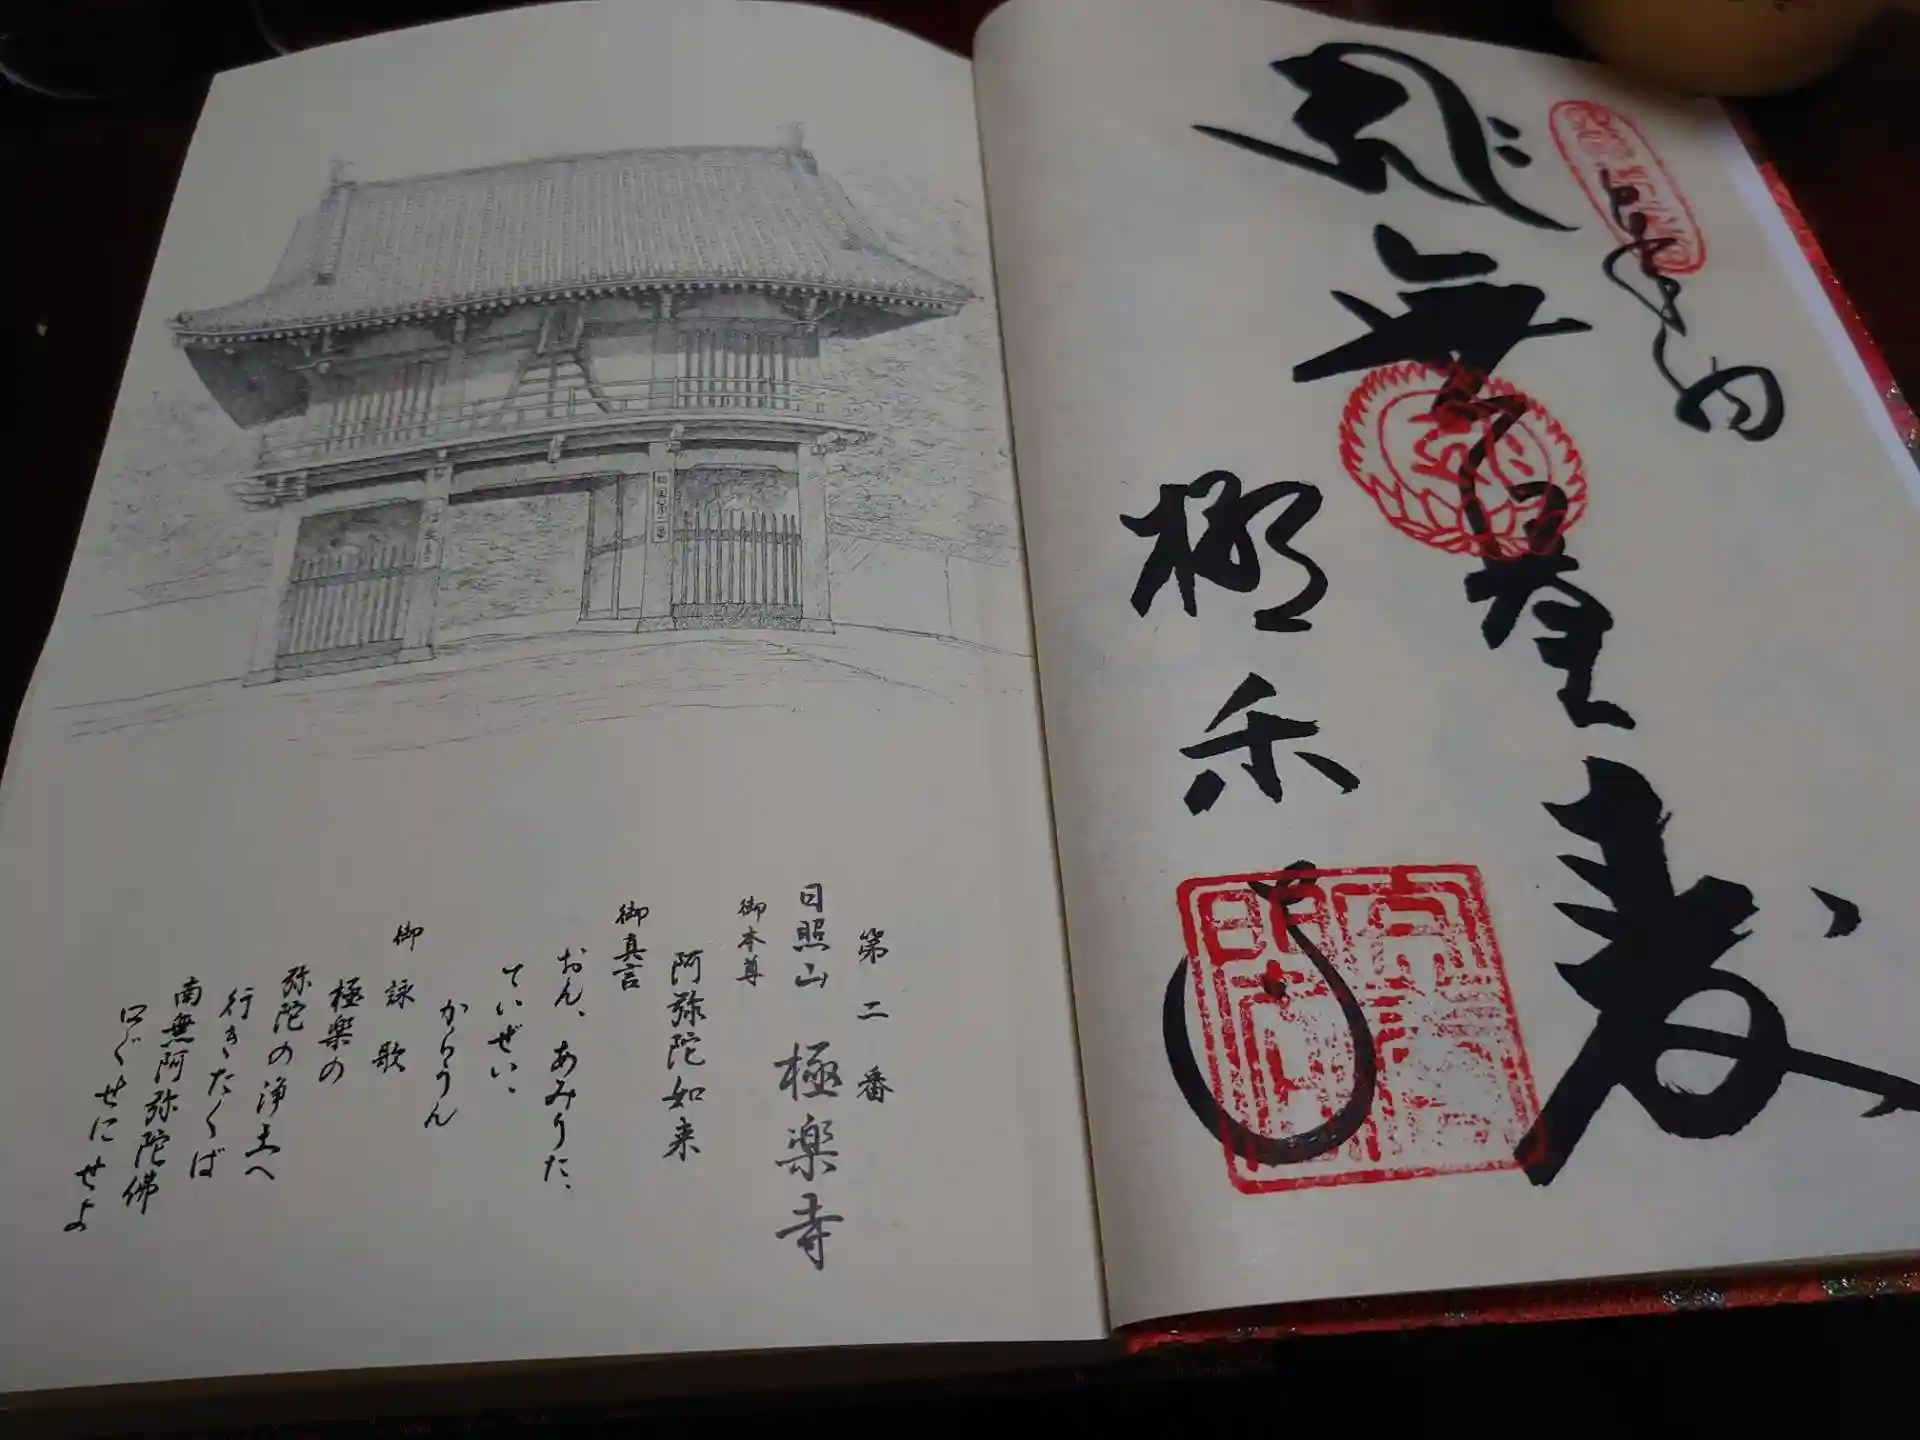 奉納
無量壽
極楽寺
第二番
日照山 極楽寺
御本尊
阿弥陀如来
御真言
おん、あみりた、
ていぜい、
からうん
御詠歌
極楽の
弥陀の浄土へ
行きたくば
南無阿弥陀佛
口ぐせにせよ